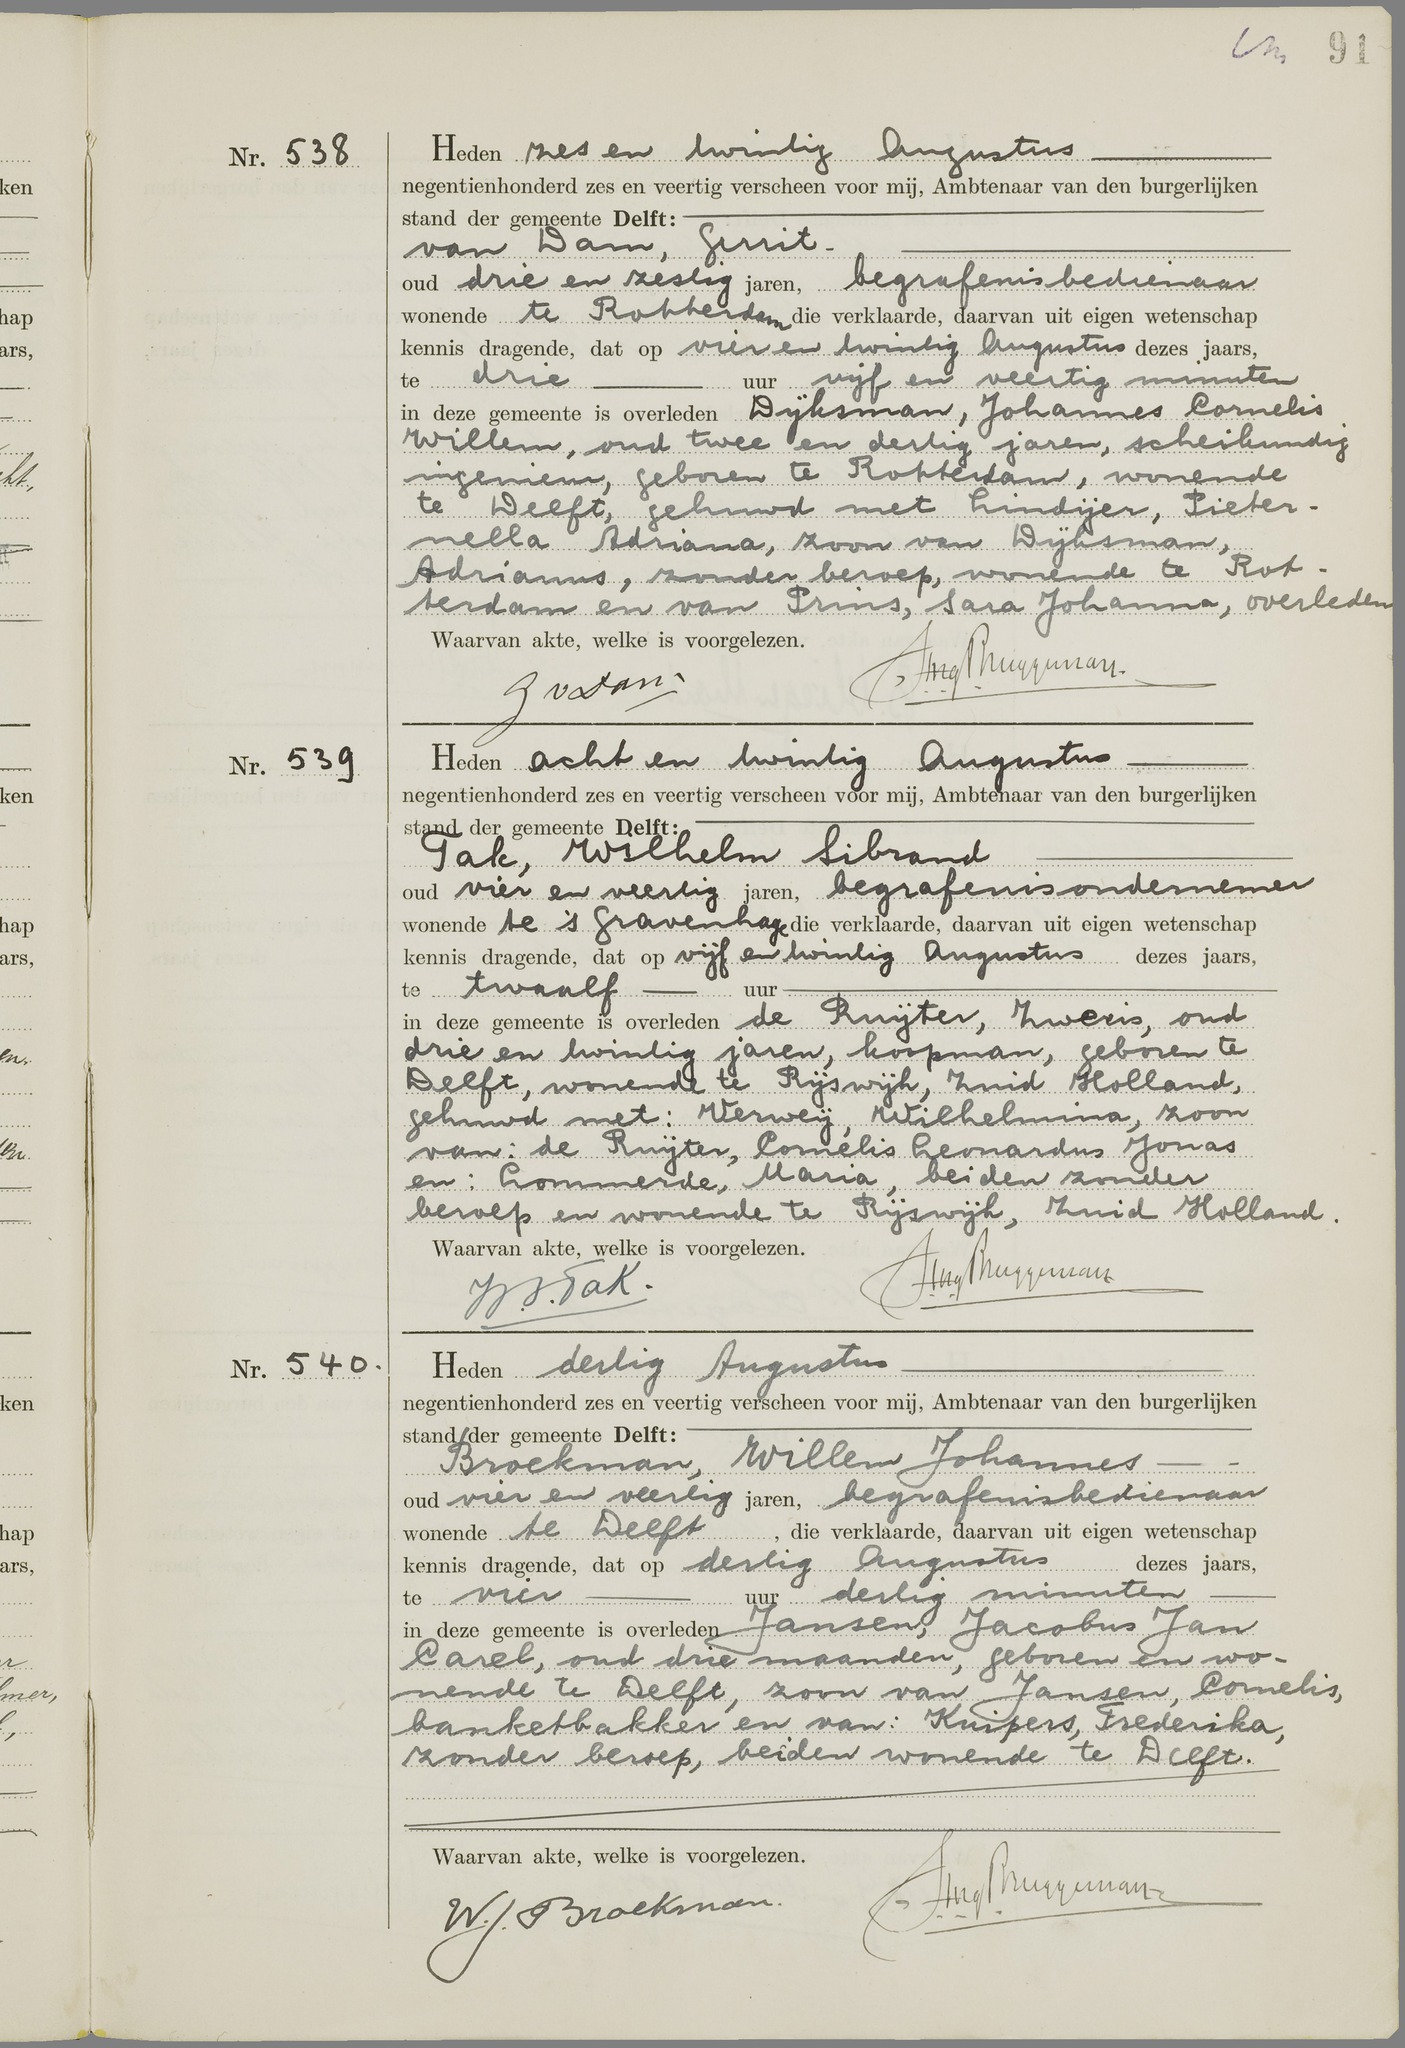 91
Nr. 538
Heden zes en twintig Augustus
negentienhonderd zes en veertig verscheen voor mij, Ambtenaar van den burgerlijken
stand der gemeente Delft:
van Dam, Gerrit
oud drie en zestig jaren, begrafenisbedienaar
wonende te Rotterdam die verklaarde, daarvan uit eigen wetenschap
kennis dragende, dat op vier en twintig Augustus dezes jaars,
te drie uur vijf en veertig minuten
in deze gemeente is overleden Dijksman, Johannes Cornelis
Willem, oud twee en dertig jaren, scheikundig
ingenieur, geboren te Rotterdam, wonende
te Delft, gehuwd met Lindijer, Pieter-
nella Adriana, zoon van Dijksman,
Adrianus, zonder beroep, wonende te Rot-
terdam en van Prins, Sara Johanna, overleden
Waarvan akte, welke is voorgelezen.
G v Dam Bruggeman
Nr. 539
Heden acht en twintig Augustus
negentienhonderd zes en veertig verscheen voor mij, Ambtenaar van den burgerlijken
stand der gemeente Delft:
Tak, Wilhelm Sibrand
oud vier en veertig jaren, begrafenisondernemer
wonende te 's Gravenhage die verklaarde, daarvan uit eigen wetenschap
kennis dragende, dat op vijf en twintig Augustus dezes jaars,
te twaalf uur
in deze gemeente is overleden de Ruijter, Zweris, oud
drie en twintig jaren, koopman, geboren te
Delft, wonende te Rijswijk, Zuid Holland,
gehuwd met: Verweij, Wilhelmina, zoon
van: de Ruijter, Cornelis Leonardus Jonas
en: Lommerde, Maria, beiden zonder
beroep en wonende te Rijswijk, Zuid Holland.
Waarvan akte, welke is voorgelezen.
W.S. Tak. Bruggeman
Nr. 540.
Heden dertig Augustus
negentienhonderd zes en veertig verscheen voor mij, Ambtenaar van den burgerlijken
stand der gemeente Delft:
Broekman, Willem Johannes
oud vier en veertig jaren, begrafenisbedienaar
wonende te Delft, die verklaarde, daarvan uit eigen wetenschap
kennis dragende, dat op dertig Augustus dezes jaars,
te vier uur dertig minuten
in deze gemeente is overleden Jansen, Jacobus Jan
Carel, oud drie maanden, geboren en wo-
nende te Delft, zoon van Jansen, Cornelis,
banketbakker en van: Kuipers, Frederika,
zonder beroep, beiden wonende te Delft.
Waarvan akte, welke is voorgelezen.
W.J. Broekman. Bruggeman